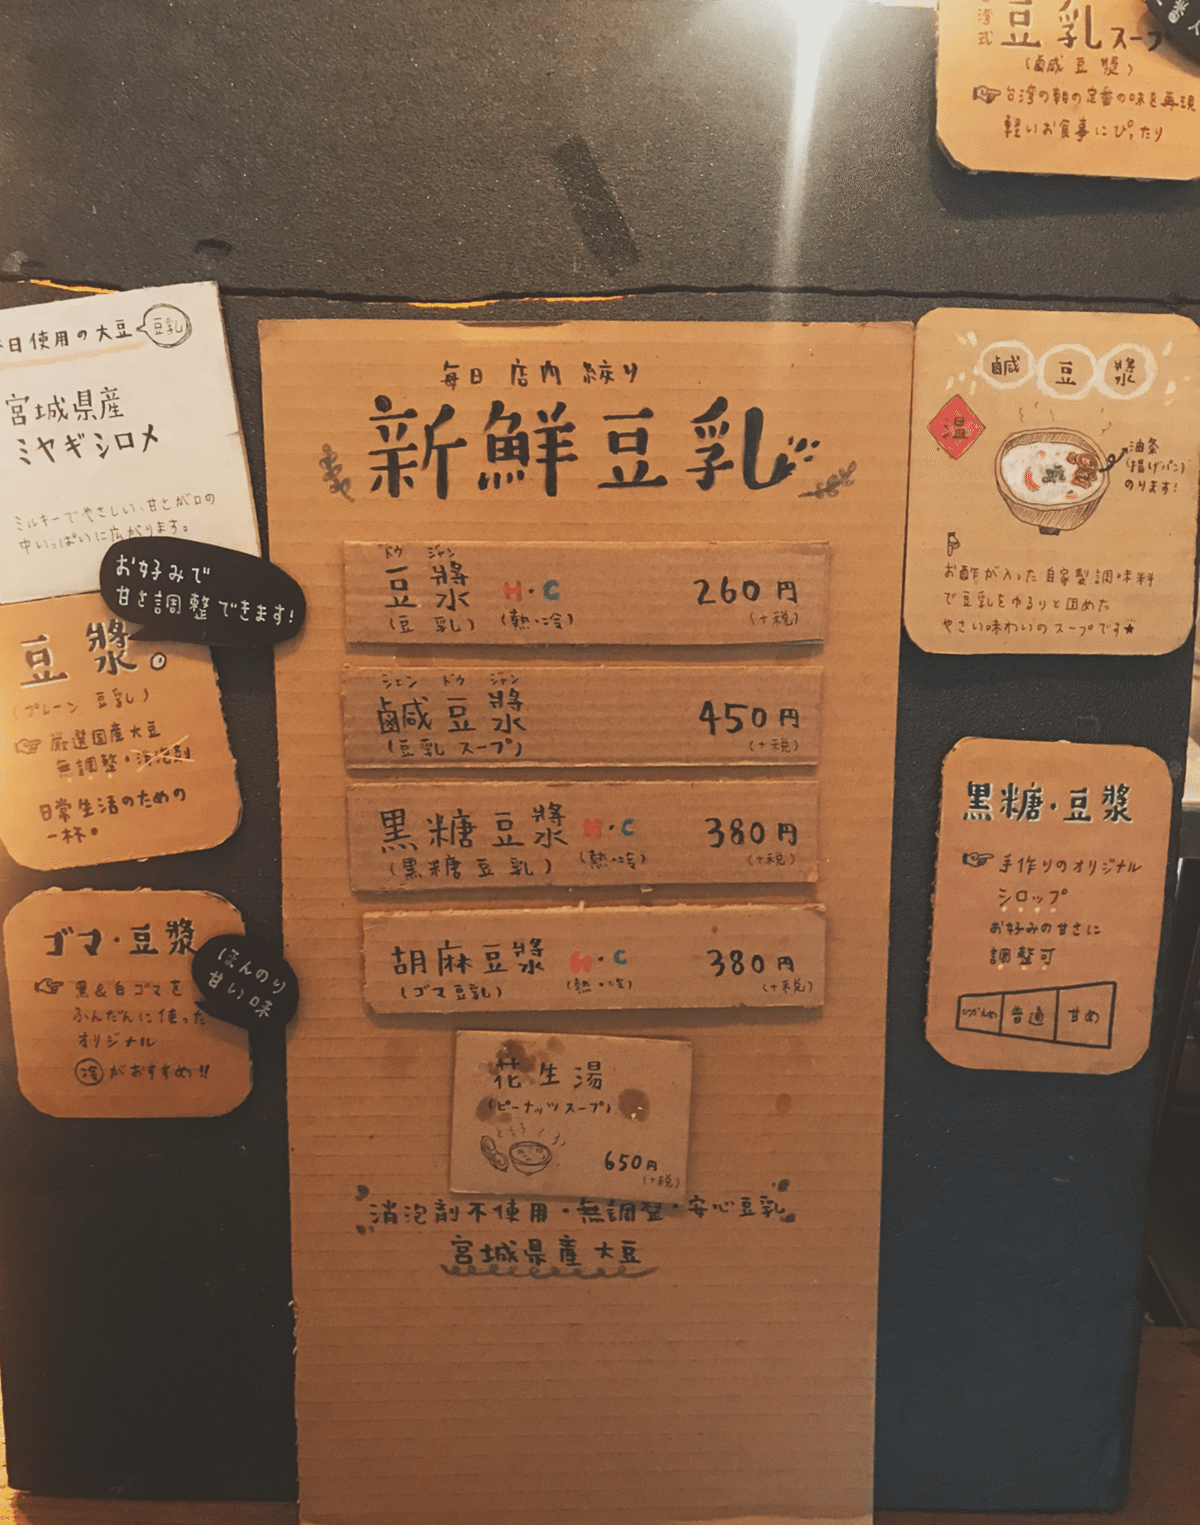 豆乳スープ
(鹹豆漿)
台湾の朝の定番の味を再現
軽いお食事にぴったり
日使用の大豆 豆乳
宮城県産
ミヤギシロメ
ミルキーでやさしい、甘さが口の
中いっぱいに広がります。
お好みで
甘さ調整できます!
豆漿。
(プレーン 豆乳)
厳選国産大豆
無調整・消泡剤
日常生活のための
一杯。
ゴマ・豆漿
ほんのり
甘い味
黒&白ゴマを
ふんだんに使った
オリジナル
冷がおすすめ!!
毎日店内絞り
新鮮豆乳
ドゥ ジャン
豆漿 H・C 260円
(豆乳) (熱・冷) (+税)
シェン ドゥ ジャン
鹹豆漿 450円
(豆乳スープ) (+税)
黒糖豆漿 H・C 380円
(黒糖豆乳) (熱・冷) (+税)
胡麻豆漿 H・C 380円
(ゴマ豆乳) (熱・冷) (+税)
花生湯
(ピーナッツスープ)
650円
(+税)
消泡剤不使用・無調整・安心豆乳
宮城県産大豆
鹹豆漿
温
油条
(揚げパン)
のります!
お酢が入った自家製調味料
で豆乳をゆるりと固めた
やさい味わいのスープです★
黒糖・豆漿
手作りのオリジナル
シロップ
お好みの甘さに
調整可
ひかえめ 普通 甘め